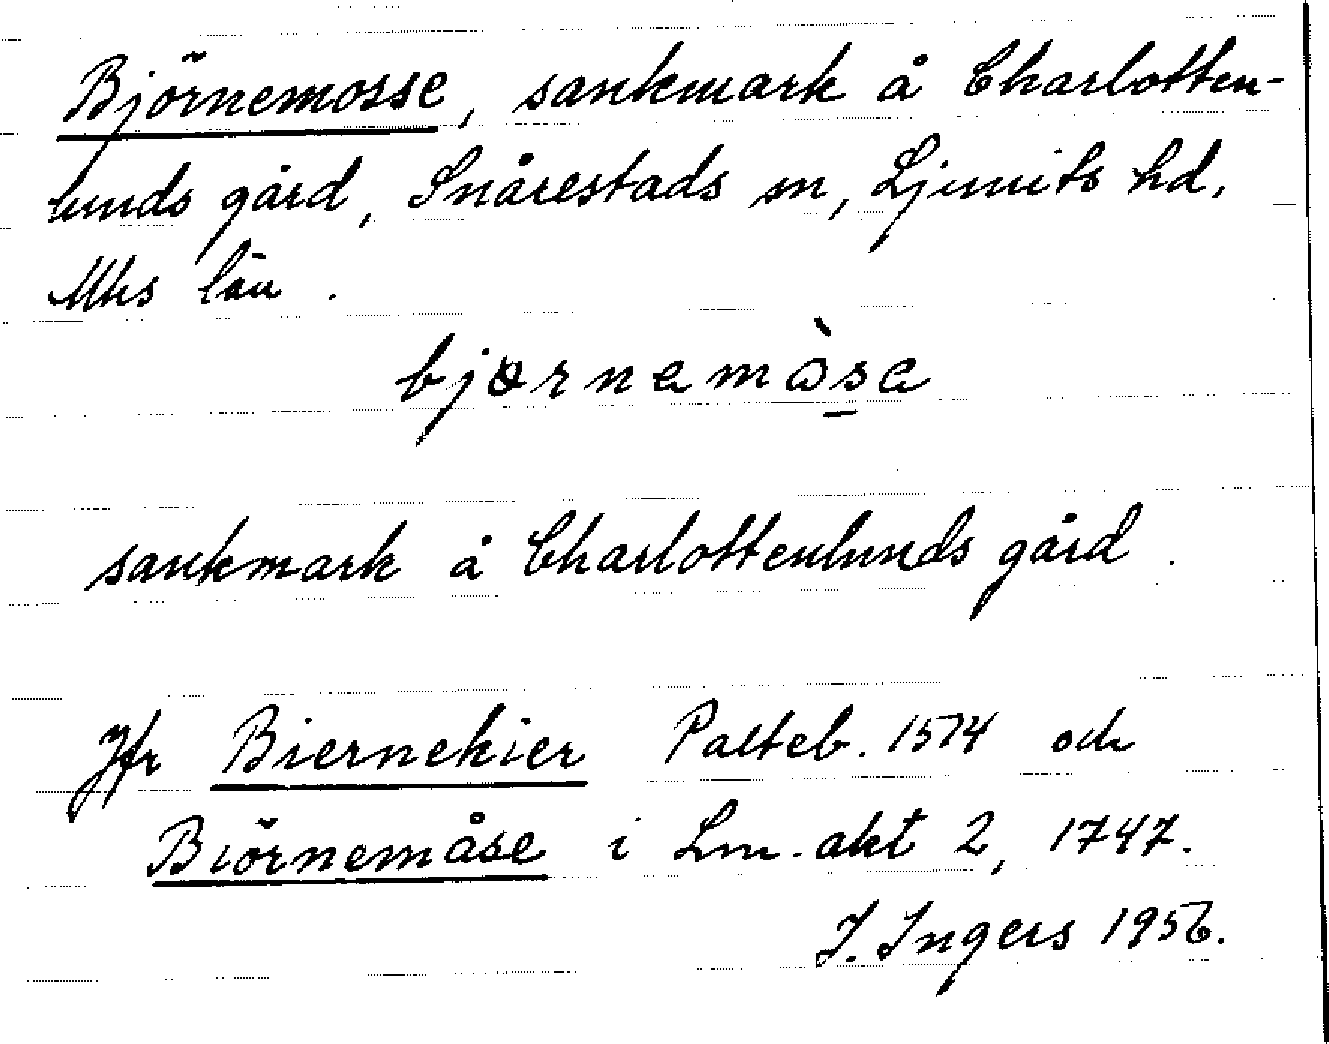 Björnemosse, sankmark å Charlotten-
lunds gård, Snårestads sn, Ljunits hd,
Mhs län.
bjørnemòse
sankmark å Charlottenlunds gård.
Jfr Biernekier Palteb. 1514 och
Biörnemåse i Lm. akt 2, 1747.
I. Ingers 1956.